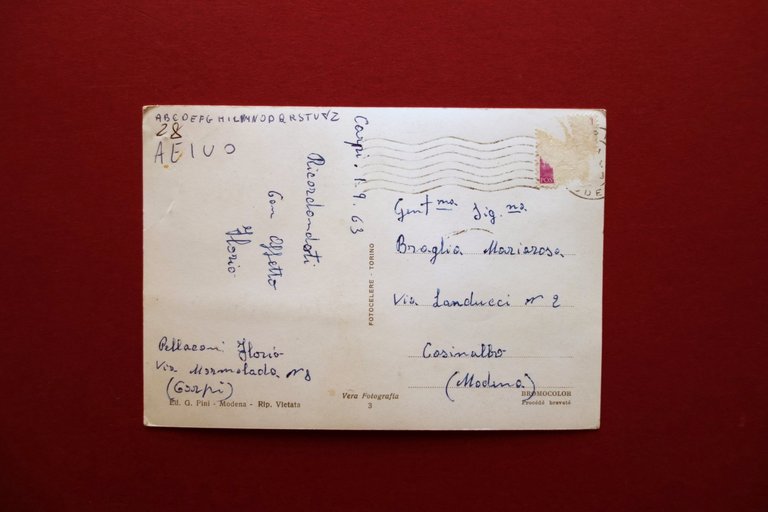 ABCDEFGHILMNOPQRSTUVZ
28
AEIUO
Carpi. 1.9.63
Ricordandoti
Con Affetto
Ilorio
Gent.ma Sig.na
Braglia Mariarosa
Via Landucci N° 2
Casinalbo
(Modena)
Pellacani Ilorio
Via Marmolada N° 8
(Carpi)
FOTOCELERE - TORINO
Ed. G. Pini - Modena - Rip. Vietata
Vera Fotografia
3
BROMOCOLOR
Procédé breveté